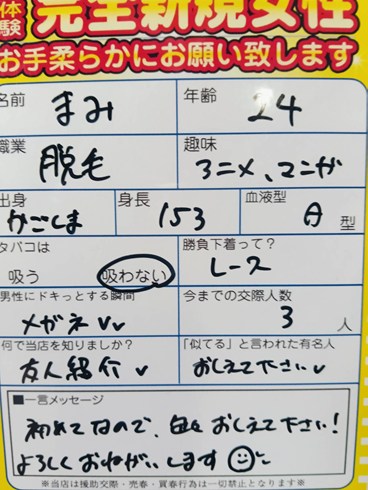 体験 完全新規女性
お手柔らかにお願い致します
名前 まみ 年齢 24
職業 脱毛 趣味 アニメ、マンガ
出身 かごしま 身長 153 血液型 A 型
タバコは 吸う 吸わない 勝負下着って? レース
男性にドキっとする瞬間 メガネ 今までの交際人数 3 人
何で当店を知りましたか? 友人紹介 「似てる」と言われた有名人 おしえて下さい
■一言メッセージ
初めてなので、色々おしえて下さい!
よろしくおねがいします
※当店は援助交際・売春・買春行為は一切禁止となります※